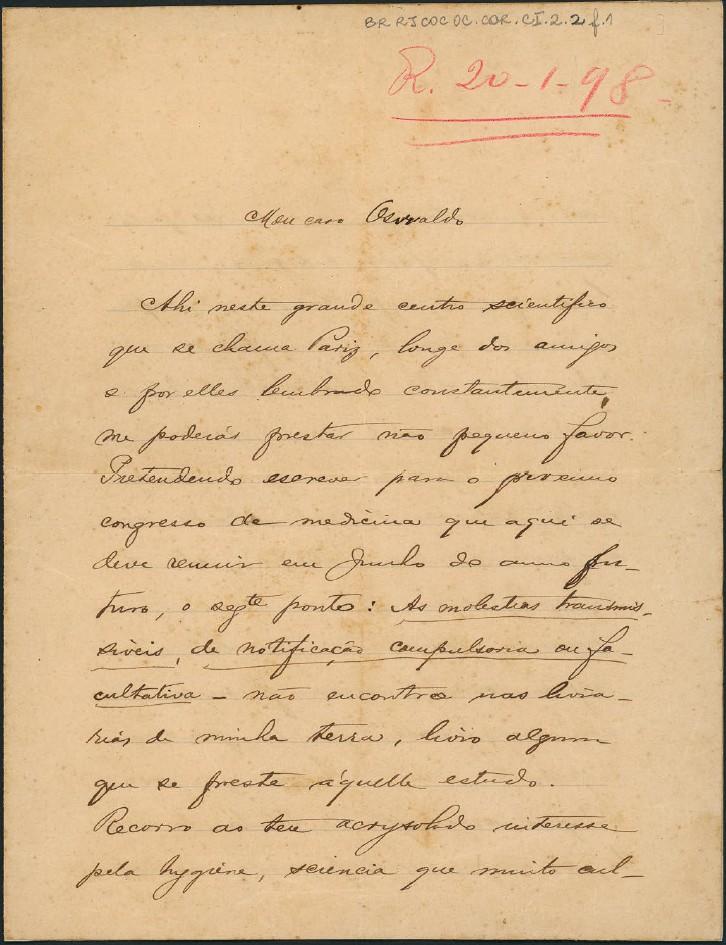 BR RJCOC OC.COR.CI.2.2 f.1
R. 20-1-98-
Meu caro Oswaldo
Ahi neste grande centro scientifico
que se chama Pariz, longe dos amigos
e por elles lembrado constantemente,
me poderás prestar não pequeno favor.
Pretendendo escrever para o proximo
congresso de medicina que aqui se
deve reunir em Junho do anno fu-
turo, o segte ponto: As molestias transmis-
siveis, de notificação compulsoria ou fa-
cultativa - não encontro nas livra-
rias de minha terra, livro algum
que se preste áquelle estudo.
Recorro ao teu acrysolado interesse
pela hygiene, sciencia que muito cul-